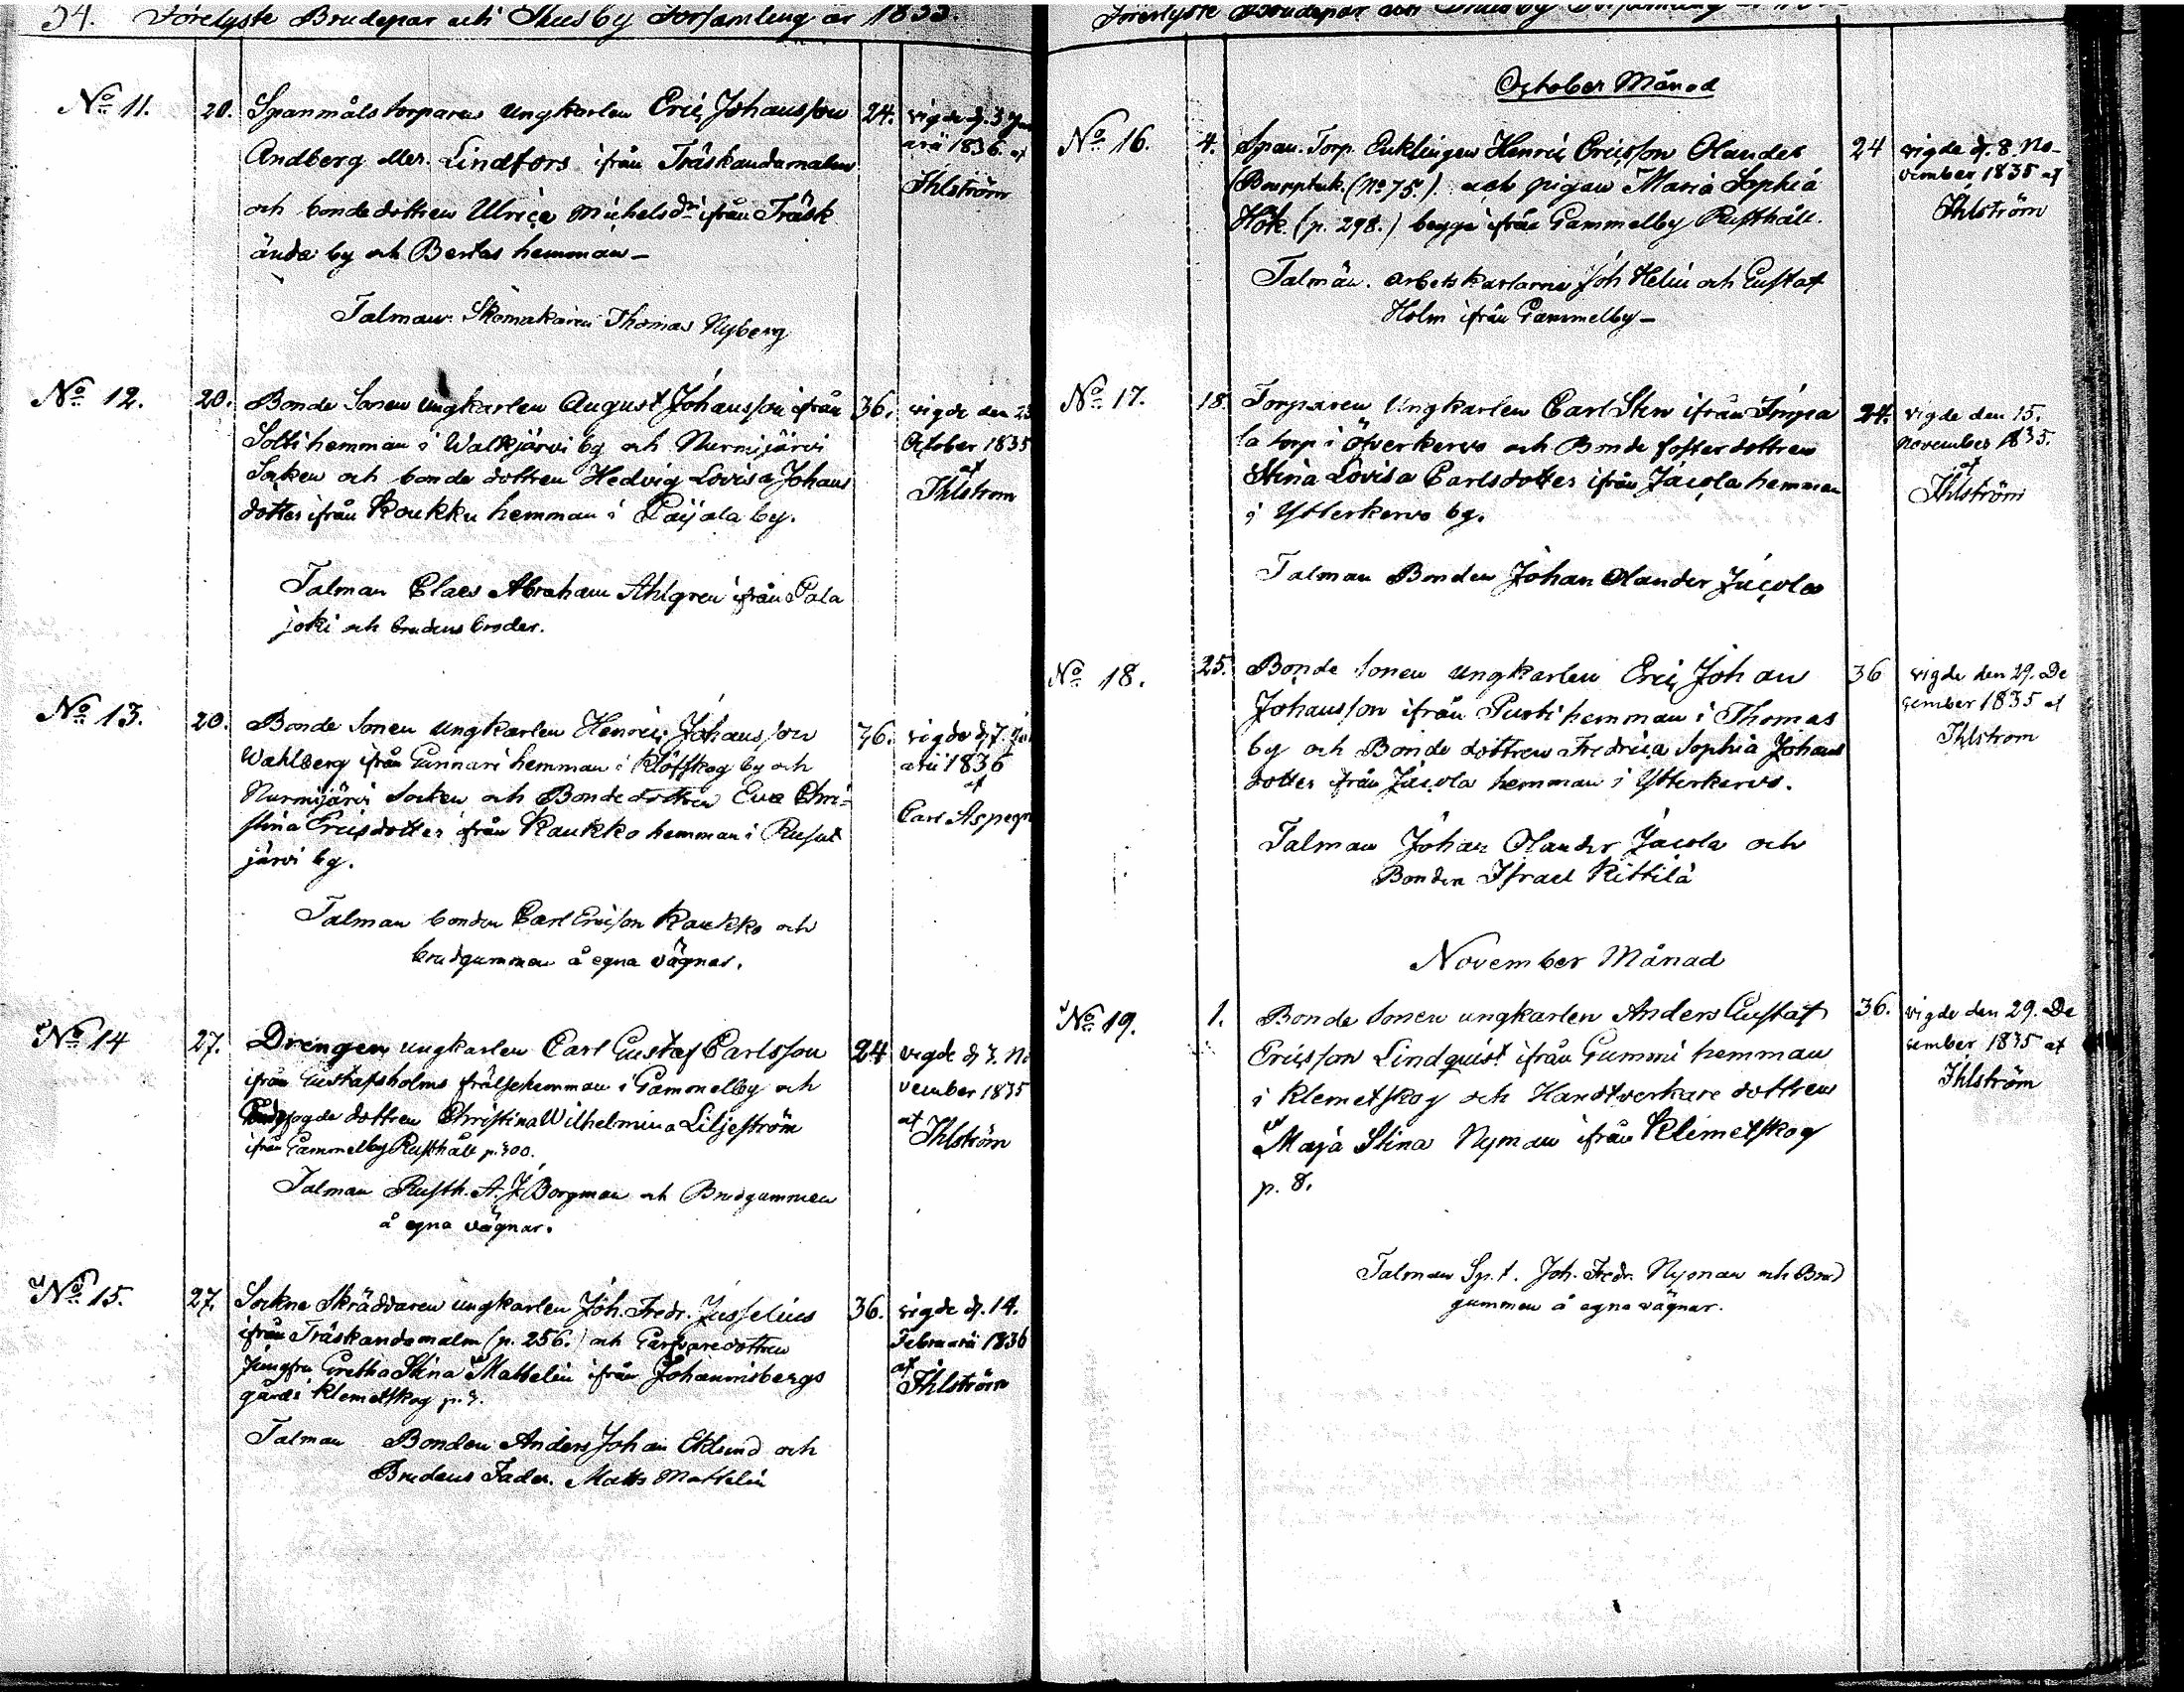 34. Förelyste Brudepar uti Thusby Församling år 1835.
No 11. 20. Spanmåls torparen ungkarlen Eric Johansson 24. vigde d. 3 Jan
Andberg eller Lindfors ifrån Träskandamalm arii 1836 af
och bonde dottren Ulrica Michelsdr ifrån Träsk Ihlström
ända by och Bertas hemman –
Talman Skomakaren Thomas Nyberg
No 12. 20. Bonde Sonen ungkarlen August Johansson ifrån 36. vigde den 25
Solti hemman i Walkjärvi by och Nurmijärvi October 1835
Socken och bonde dottren Hedvig Lovisa Johans af
dotter ifrån Koukku hemman i Paijala by. Ihlström
Talman Claes Abraham Ahlgren ifrån Pala
joki och brudens broder.
No 13. 20. Bonde Sonen ungkarlen Henric Johansson 36. vigde d. 7.
Wahlberg ifrån Gunnari hemman i Klöfskog by och arii 1836
Nurmijärvi Socken och Bonde dottren Eva Chri- af
stina Ericsdotter ifrån Kaukko hemman i Rusut Carl Aspegr
järvi by.
Talman bonden Carl Ericson Kaukko och
brudgummen å egna vägnar.
No 14 27. Drengen ungkarlen Carl Gustaf Carlsson 24 vigde d. No
ifrån Gustafsholms frälsehemman i Gammelby och vember 1835
fogde dottren Christina Wilhelmina Liljeström af
ifrån Gammelby Rusthåll p. 300. Ihlström
Talman Rusth. A. J. Borgman och Brudgummen
å egna vägnar.
No 15. 27. Sockne Skräddaren ungkarlen Joh. Fredr. Jusselius 36. vigde d. 14.
ifrån Träskandamalm (p. 256.) och Garfvaredottren Februarii 1836
Jungfru Gretha Stina Mattelin ifrån Johannisbergs af
gård i Klemetskog p. Ihlström
Talman Bonden Anders Johan Eklund och
Brudens Fader. Matts Mattelin
Förelyste Brudepar uti Thusby Församling
October Månad
No 16. 4. Span. Torp. Enklingen Henric Ericsson Olander 24 vigde d. 8. No-
(No 75.) och pigan Maria Sophia vember 1835 af
Hök (p. 298.) begge ifrån Gammelby Rusthåll. Ihlström
Talmän. arbetskarlarne Joh Helin och Gustaf
Holm ifrån Gammelby –
No 17. 18. Torparen Ungkarlen Carl Sten ifrån Impa 24. vigde den 15.
la torp i Öfverkervo och Bonde fosterdottren November 1835.
Stina Lovisa Carlsdotter ifrån Jäcola hemman af
i Ytterkervo by. Ihlström
Talman Bonden Johan Olander Jäcola
No 18. 25. Bonde Sonen Ungkarlen Eric Johan 36 vigde den 29. De
Johansson ifrån Pusti hemman i Thomas cember 1835 af
by och Bonde dottren Fredrica Sophia Johans Ihlström
dotter ifrån Jäcola hemman i Ytterkervo.
Talman Johan Olander Jäcola och
Bonden Israel Kittilä
November Månad
No 19. 1. Bonde Sonen ungkarlen Anders Gustaf 36. vigde den 29. De
Ericsson Lindquist ifrån Gummi hemman cember 1835 af
i Klemetskog och Handtverkare dottren Ihlström
Maja Stina Nyman ifrån Klemetskog
p. 8.
Talman Sp. t. Joh. Fredr. Nyman och Brud
gummen å egna vägnar.